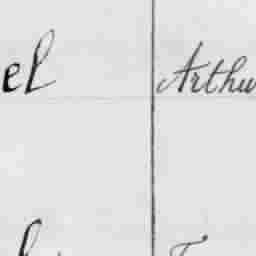 el Arthu